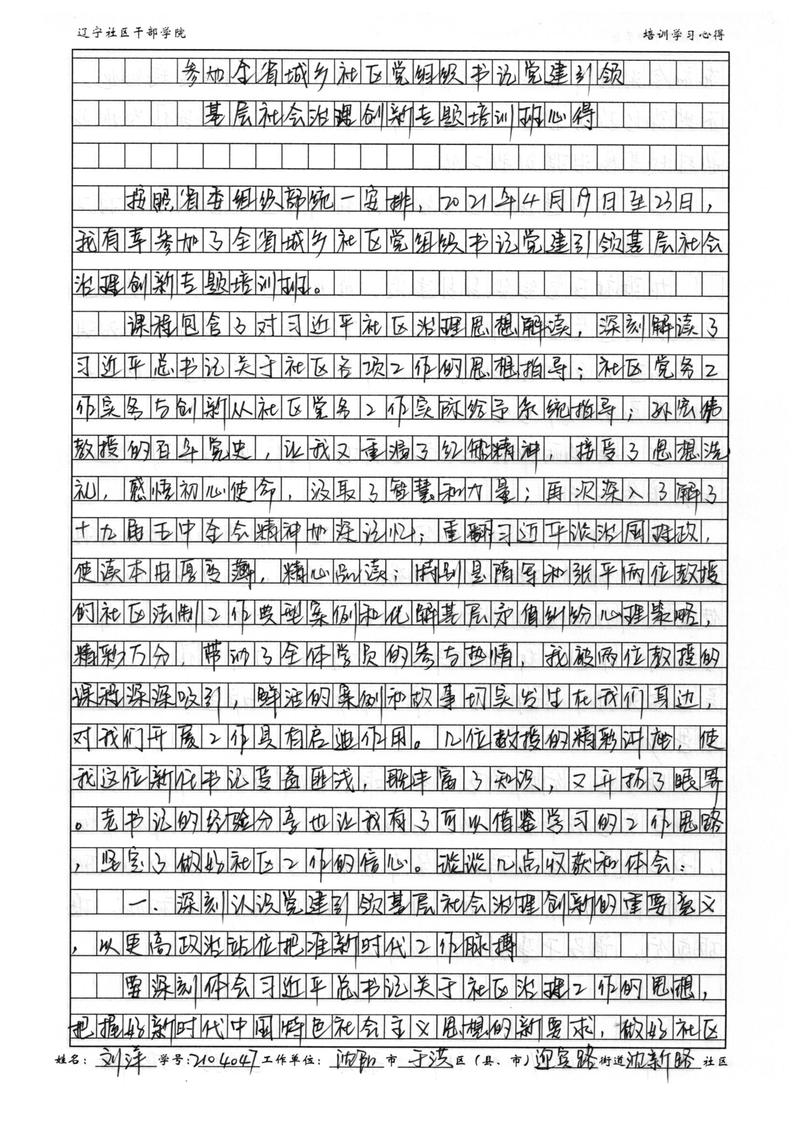 辽宁社区干部学院 培训学习心得
参加全省城乡社区党组织书记党建引领
基层社会治理创新专题培训班心得
按照省委组织部统一安排，2021年4月19日至23日，
我有幸参加了全省城乡社区党组织书记党建引领基层社会
治理创新专题培训班。
课程包含了对习近平社区治理思想解读，深刻解读了
习近平总书记关于社区各项工作的思想指导；社区党务工
作实务与创新从社区党务工作实际给予系统指导；孙宏伟
教授的百年党史，让我又重温了红船精神，接受了思想洗
礼，感悟初心使命，汲取了智慧和力量；再次深入了解了
十九届五中全会精神加深记忆；重翻习近平谈治国理政，
使读本由厚变薄，精心品读；特别是隋写和张平两位教授
的社区法制工作典型案例和化解基层矛盾纠纷心理策略，
精彩万分，带动了全体学员的参与热情，我被两位教授的
课程深深吸引，鲜活的案例和故事切实发生在我们身边，
对我们开展工作具有启迪作用。几位教授的精彩讲座，使
我这位新任书记受益匪浅，既丰富了知识，又开拓了眼界
。老书记的经验分享也让我有了可以借鉴学习的工作思路
，坚定了做好社区工作的信心。谈谈几点收获和体会：
一、深刻认识党建引领基层社会治理创新的重要意义
，以更高政治站位把准新时代工作脉搏
要深刻体会习近平总书记关于社区治理工作的思想，
把握好新时代中国特色社会主义思想的新要求，做好社区
姓名：刘洋 学号：2104047 工作单位：沈阳市于洪区（县、市）迎宾路街道沈新路社区